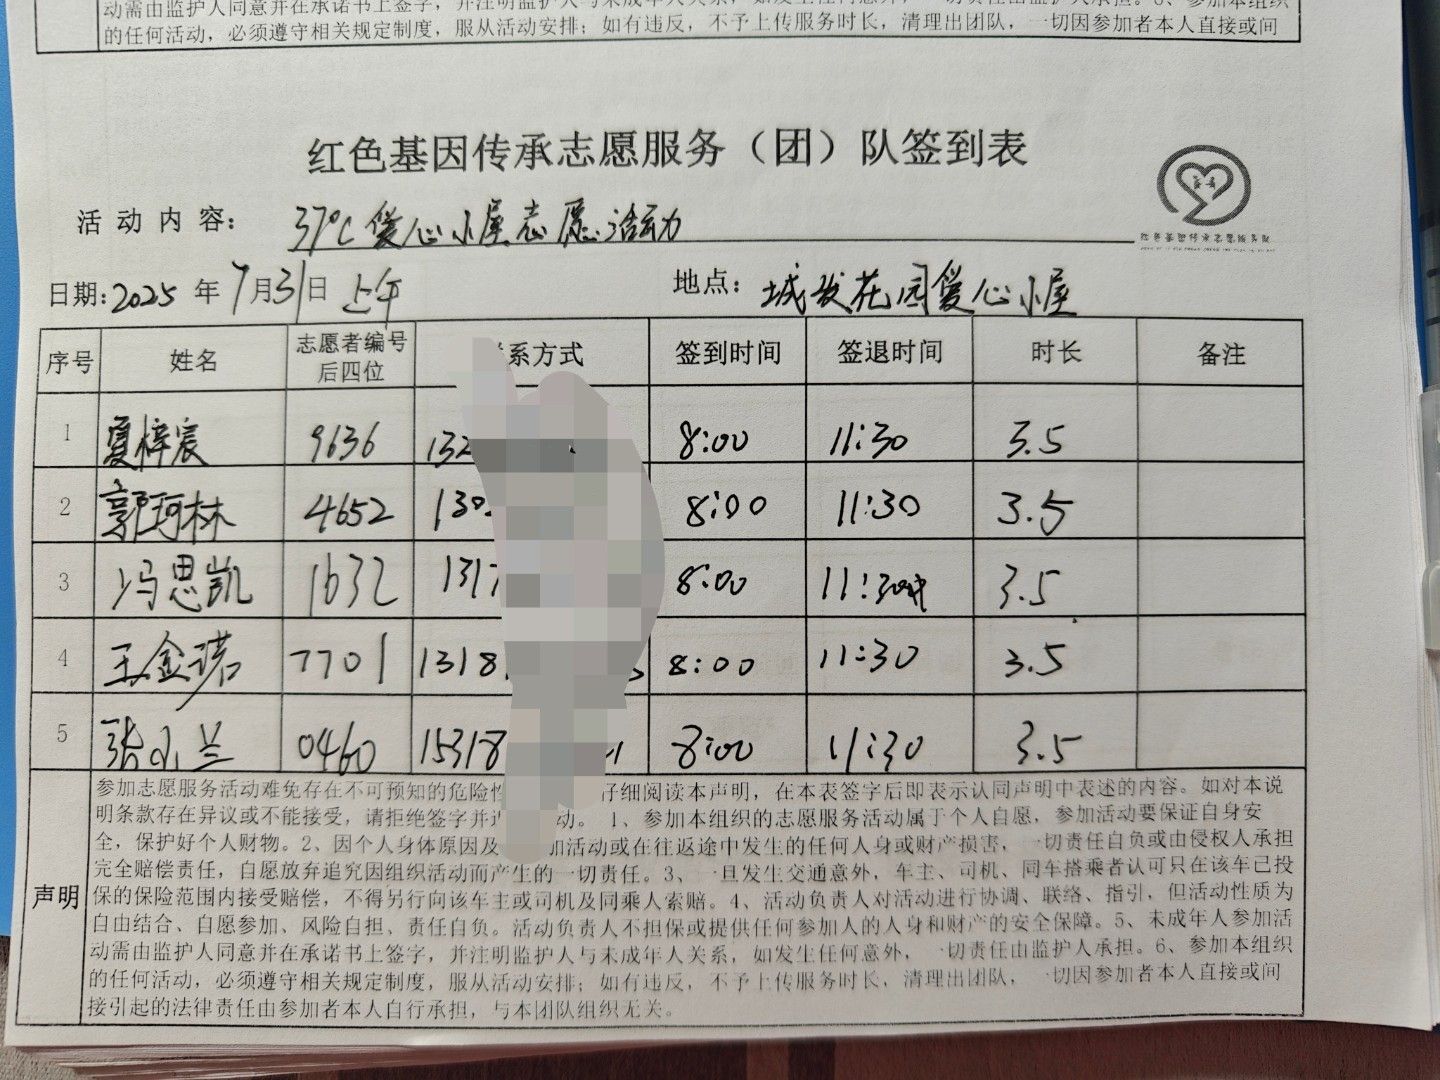 动需由监护人同意并在承诺书上签字，并注明监护人与未成年人关系，如发生任何意外，一切责任由监护人承担。6、参加本组织
的任何活动，必须遵守相关规定制度，服从活动安排；如有违反，不予上传服务时长，清理出团队，一切因参加者本人直接或间
红色基因传承志愿服务（团）队签到表
活动内容：37℃爱心小屋志愿活动
日期：2025年7月31日 上午 地点：城发花园爱心小屋
序号 姓名 志愿者编号后四位 系方式 签到时间 签退时间 时长 备注
1 夏梓宸 9636 132 8:00 11:30 3.5
2 郭珂林 4652 130 8:00 11:30 3.5
3 冯思凯 1632 1317 8:00 11:30 3.5
4 王金诺 7701 1318 8:00 11:30 3.5
5 张小兰 0460 15318 8:00 11:30 3.5
声明
参加志愿服务活动难免存在不可预知的危险 仔细阅读本声明，在本表签字后即表示认同声明中表述的内容。如对本说
明条款存在异议或不能接受，请拒绝签字并 动。1、参加本组织的志愿服务活动属于个人自愿，参加活动要保证自身安
全，保护好个人财物。2、因个人身体原因及 加活动或在往返途中发生的任何人身或财产损害，一切责任自负或由侵权人承担
完全赔偿责任，自愿放弃追究因组织活动而产生的一切责任。3、一旦发生交通意外，车主、司机、同车搭乘者认可只在该车已投
保的保险范围内接受赔偿，不得另行向该车主或司机及同乘人索赔。4、活动负责人对活动进行协调、联络、指引，但活动性质为
自由结合、自愿参加、风险自担、责任自负。活动负责人不担保或提供任何参加人的人身和财产的安全保障。5、未成年人参加活
动需由监护人同意并在承诺书上签字，并注明监护人与未成年人关系，如发生任何意外，一切责任由监护人承担。6、参加本组织
的任何活动，必须遵守相关规定制度，服从活动安排；如有违反，不予上传服务时长，清理出团队，一切因参加者本人直接或间
接引起的法律责任由参加者本人自行承担，与本团队组织无关。